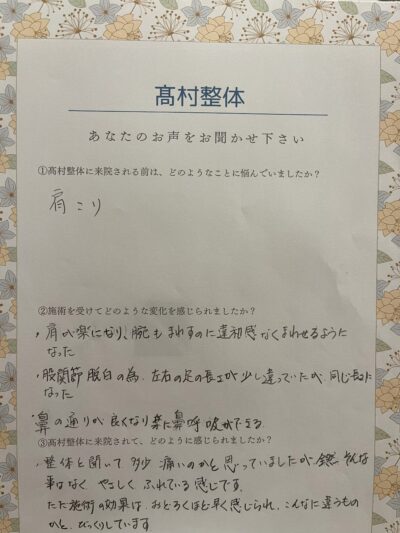 髙村整体
あなたのお声をお聞かせ下さい
①髙村整体に来院される前は、どのようなことに悩んでいましたか？
肩こり
②施術を受けてどのような変化を感じられましたか？
・肩が楽になり、腕もまわすのに違和感なくまわせるように
なった
・股関節脱臼の為、左右の足の長さが少し違っていたが、同じ長さに
なった
・鼻の通りが良くなり楽に鼻呼吸ができる
③髙村整体に来院されて、どのように感じられましたか？
・整体と聞いて多少痛いのかと思っていましたが全然そんな
事はなくやさしくふれている感じです。
ただ施術の効果は、おどろくほど早く感じられ、こんなに違うもの
かと、びっくりしています